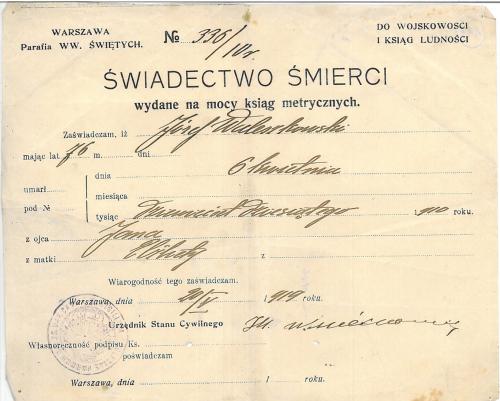 WARSZAWA
Parafia WW. ŚWIĘTYCH.
№ 336/10r.
DO WOJSKOWOSCI
I KSIĄG LUDNOŚCI
ŚWIADECTWO ŚMIERCI
wydane na mocy ksiąg metrycznych.
Zaświadczam, iż Józef
mając lat 76 m. dni
dnia 6 kwietnia
umarł miesiąca
pod № tysiąc dziewięćset dziesiątego 1910 roku.
z ojca Jana
z matki z
Wiarogodność tego zaświadczam.
Warszawa, dnia 20/V 1919 roku.
Urzędnik Stanu Cywilnego
Własnoręczność podpisu Ks.
poświadczam
Warszawa, dnia 1 roku.